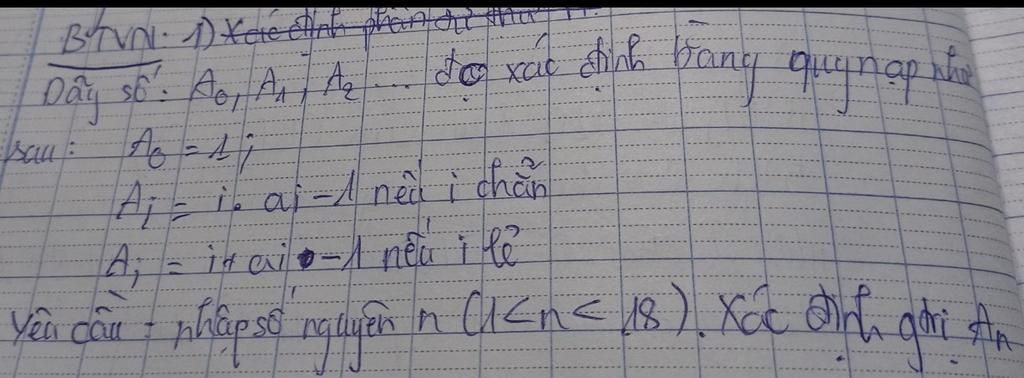 BTVN: 1) Xác định phần tử thứ n.
Dãy số: A₀, A₁, A₂ ... đc xác định bằng quy nạp như
sau: A₀ = 1;
Aᵢ = i. ai - 1 nếu i chẵn
Aᵢ = i + ai - 1 nếu i lẻ
Yêu cầu: nhập số nguyên n (1 < n < 18). Xác định gtri Aₙ